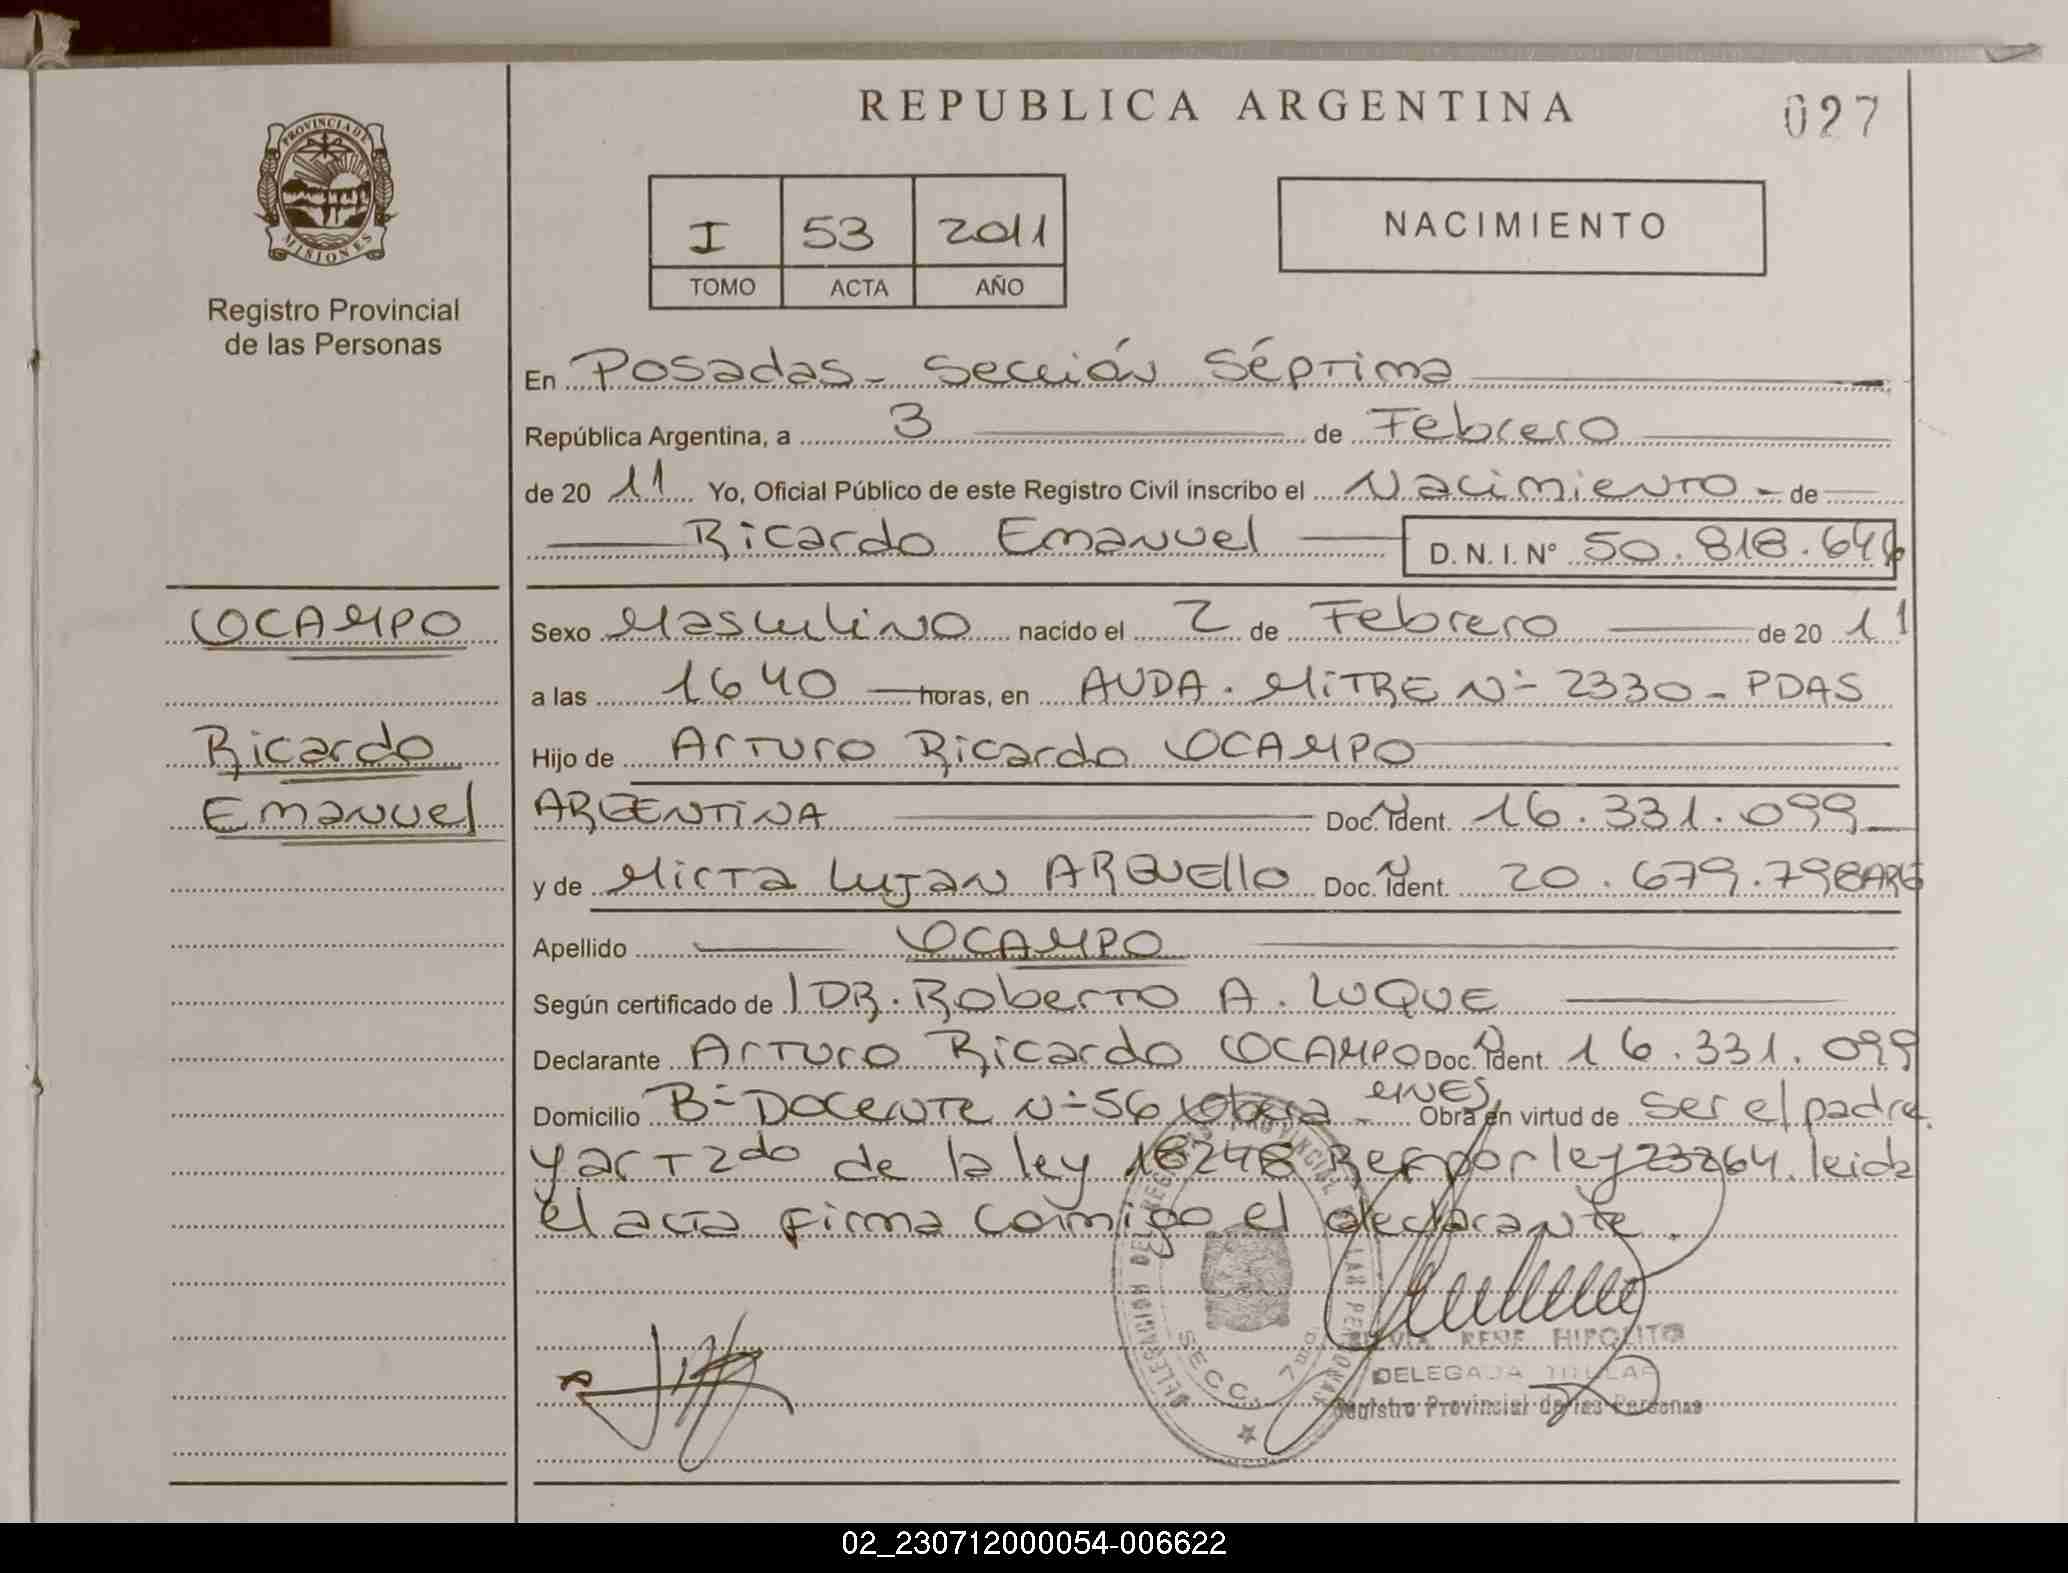 REPUBLICA ARGENTINA
027
PROVINCIA DE MISIONES
Registro Provincial
de las Personas
I 53 2011
TOMO ACTA AÑO
NACIMIENTO
En Posadas - Sección Séptima
República Argentina, a 3 de Febrero
de 20 11 Yo, Oficial Público de este Registro Civil inscribo el Nacimiento - de
Ricardo Emanuel D. N. I. Nº 50.818.646
OCAMPO
Ricardo
Emanuel
Sexo Masculino nacido el 2 de Febrero de 20 11
a las 1640 horas, en AVDA. MiTRE Nº 2330 - PDAS
Hijo de Arturo Ricardo OCAMPO
ARGENTINA Doc. N Ident. 16.331.099
y de Mirta Lujan ARGUEllo Doc. N Ident. 20.679.798 ARG
Apellido OCAMPO
Según certificado de DR. Roberto A. LUQUE
Declarante Arturo Ricardo OCAMPO Doc. N Ident. 16.331.099
Domicilio Bº Docente Nº 56 Obera - Mnes Obra en virtud de ser el padre
y art 2do de la ley 18248 Ref por ley 23264. leida
el acta firma conmigo el declarante.
DELEGACION DEL REGISTRO PROVINCIAL DE LAS PERSONAS
SECC. 7ma.
RENE HIPOLITO
DELEGADA TITULAR
Registro Provincial de las Personas
02_230712000054-006622